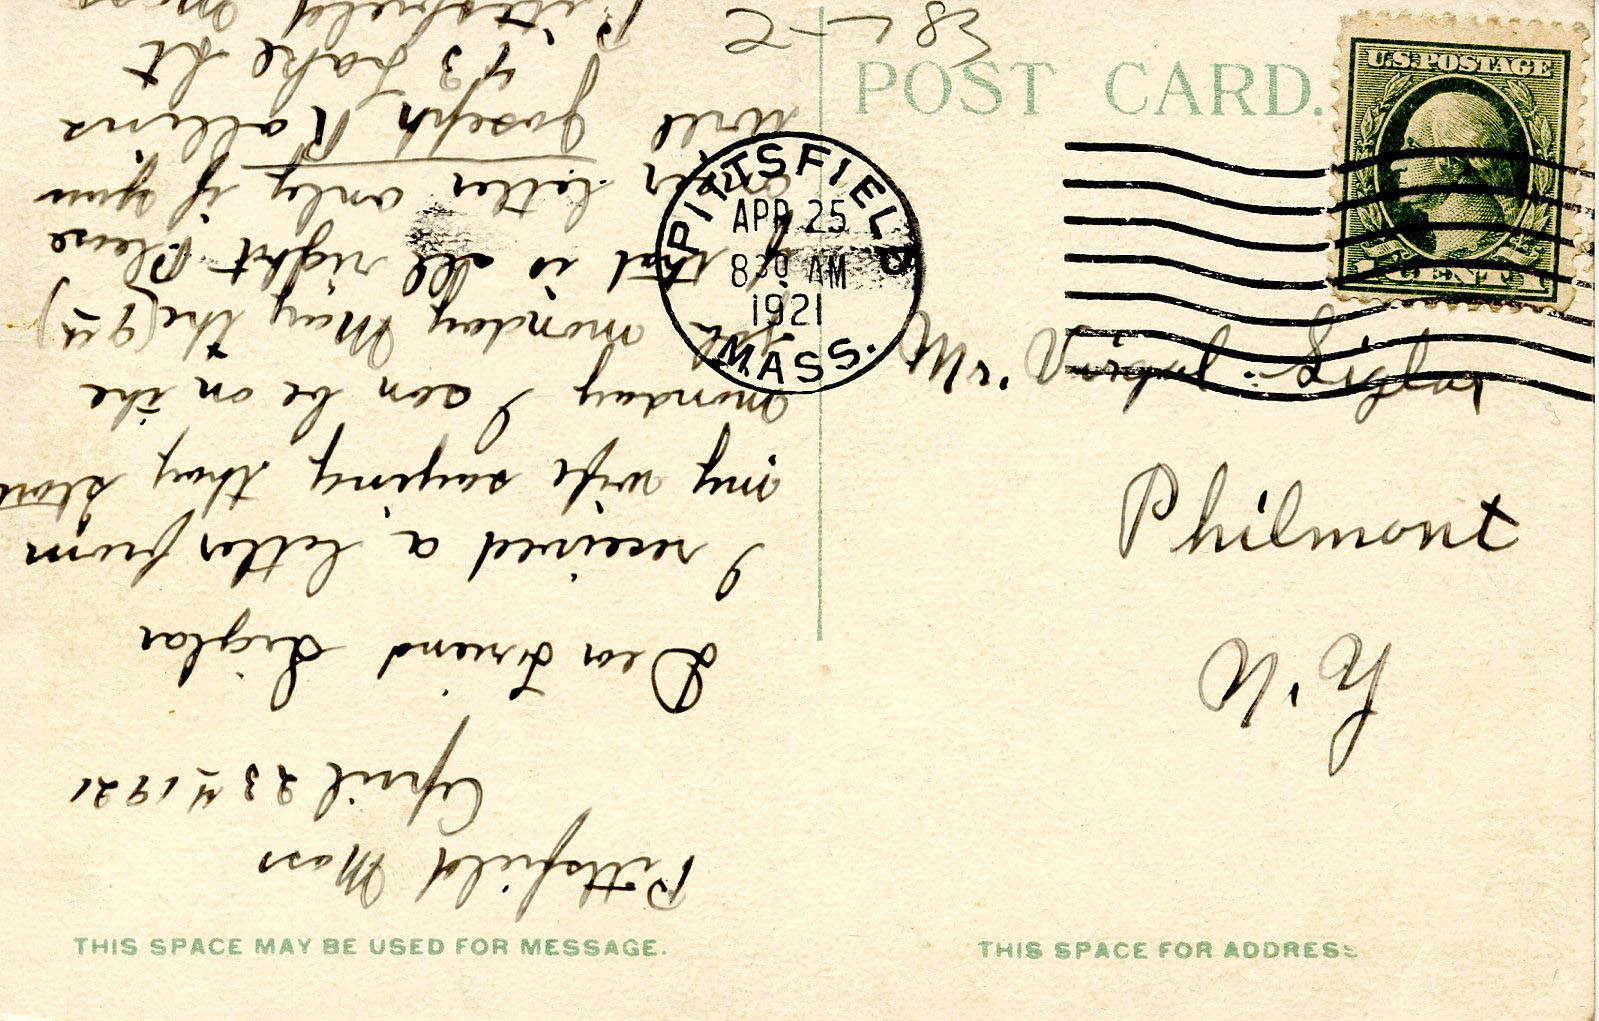 POST CARD.
U.S. POSTAGE
PITTSFIELD
APR 25
8 30 AM
1921
MASS.
Philmont
N.Y.
Pittsfield Mass
April 23 1921
Dear Friend Siglar
I received a letter from
my wife saying they
monday I can be on the
monday May the (9th)
if that is all right Please
letter only if your
will Joseph Rallins
43 Lake St
Pittsfield Mass
THIS SPACE MAY BE USED FOR MESSAGE.
THIS SPACE FOR ADDRESS